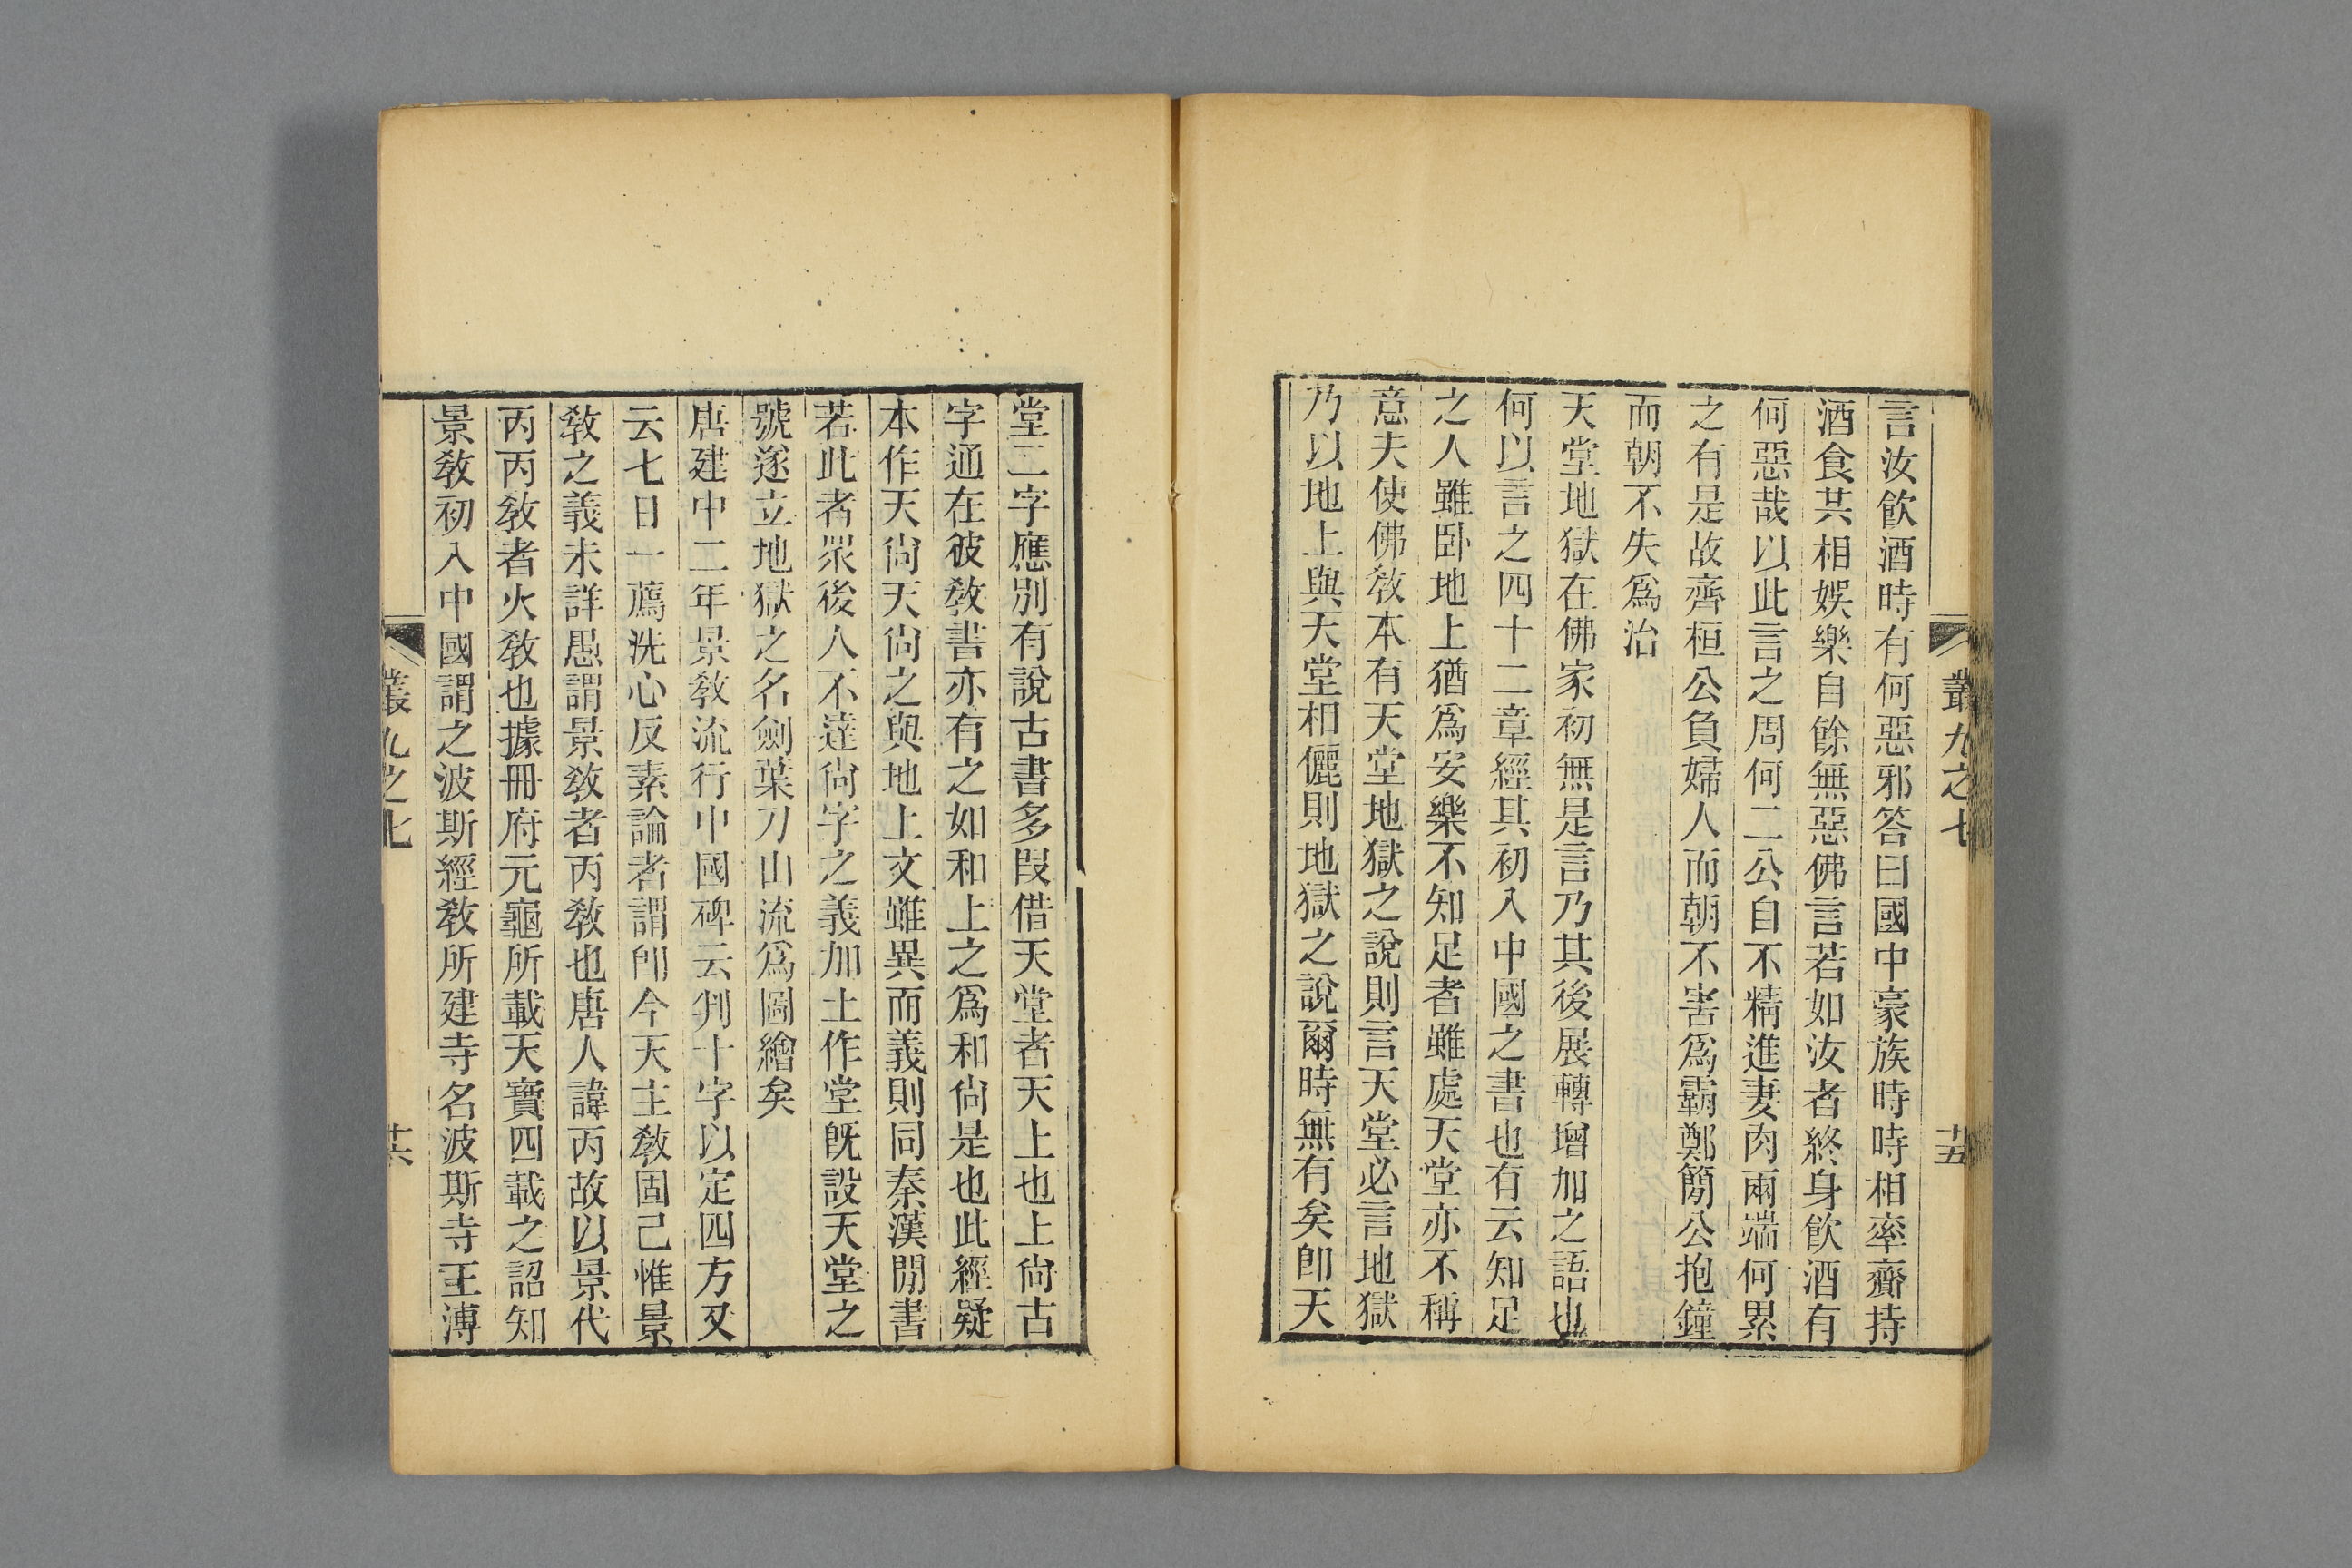 叢九之七
十五
言汝飲酒時有何惡邪答曰國中豪族時時相率齎持
酒食共相娛樂自餘無惡佛言若如汝者終身飲酒有
何惡哉以此言之周何二公自不精進妻肉兩端何累
之有是故齊桓公負婦人而朝不害爲霸鄭簡公抱鐘
而朝不失爲治
天堂地獄在佛家初無是言乃其後展轉增加之語也
何以言之四十二章經其初入中國之書也有云知足
之人雖卧地上猶爲安樂不知足者雖處天堂亦不稱
意夫使佛敎本有天堂地獄之說則言天堂必言地獄
乃以地上與天堂相儷則地獄之說爾時無有矣卽天
堂二字應別有說古書多叚借天堂者天上也上尙古
字通在彼敎書亦有之如和上之爲和尙是也此經疑
本作天尙天尙之與地上文雖異而義則同秦漢閒書
若此者衆後人不達尙字之義加土作堂旣設天堂之
號遂立地獄之名劍葉刀山流爲圖繪矣
唐建中二年景敎流行中國碑云判十字以定四方又
云七日一薦洗心反素論者謂卽今天主敎固已惟景
敎之義未詳愚謂景敎者丙敎也唐人諱丙故以景代
丙丙敎者火敎也據冊府元龜所載天寶四載之詔知
景敎初入中國謂之波斯經敎所建寺名波斯寺王溥
叢九之七
十六